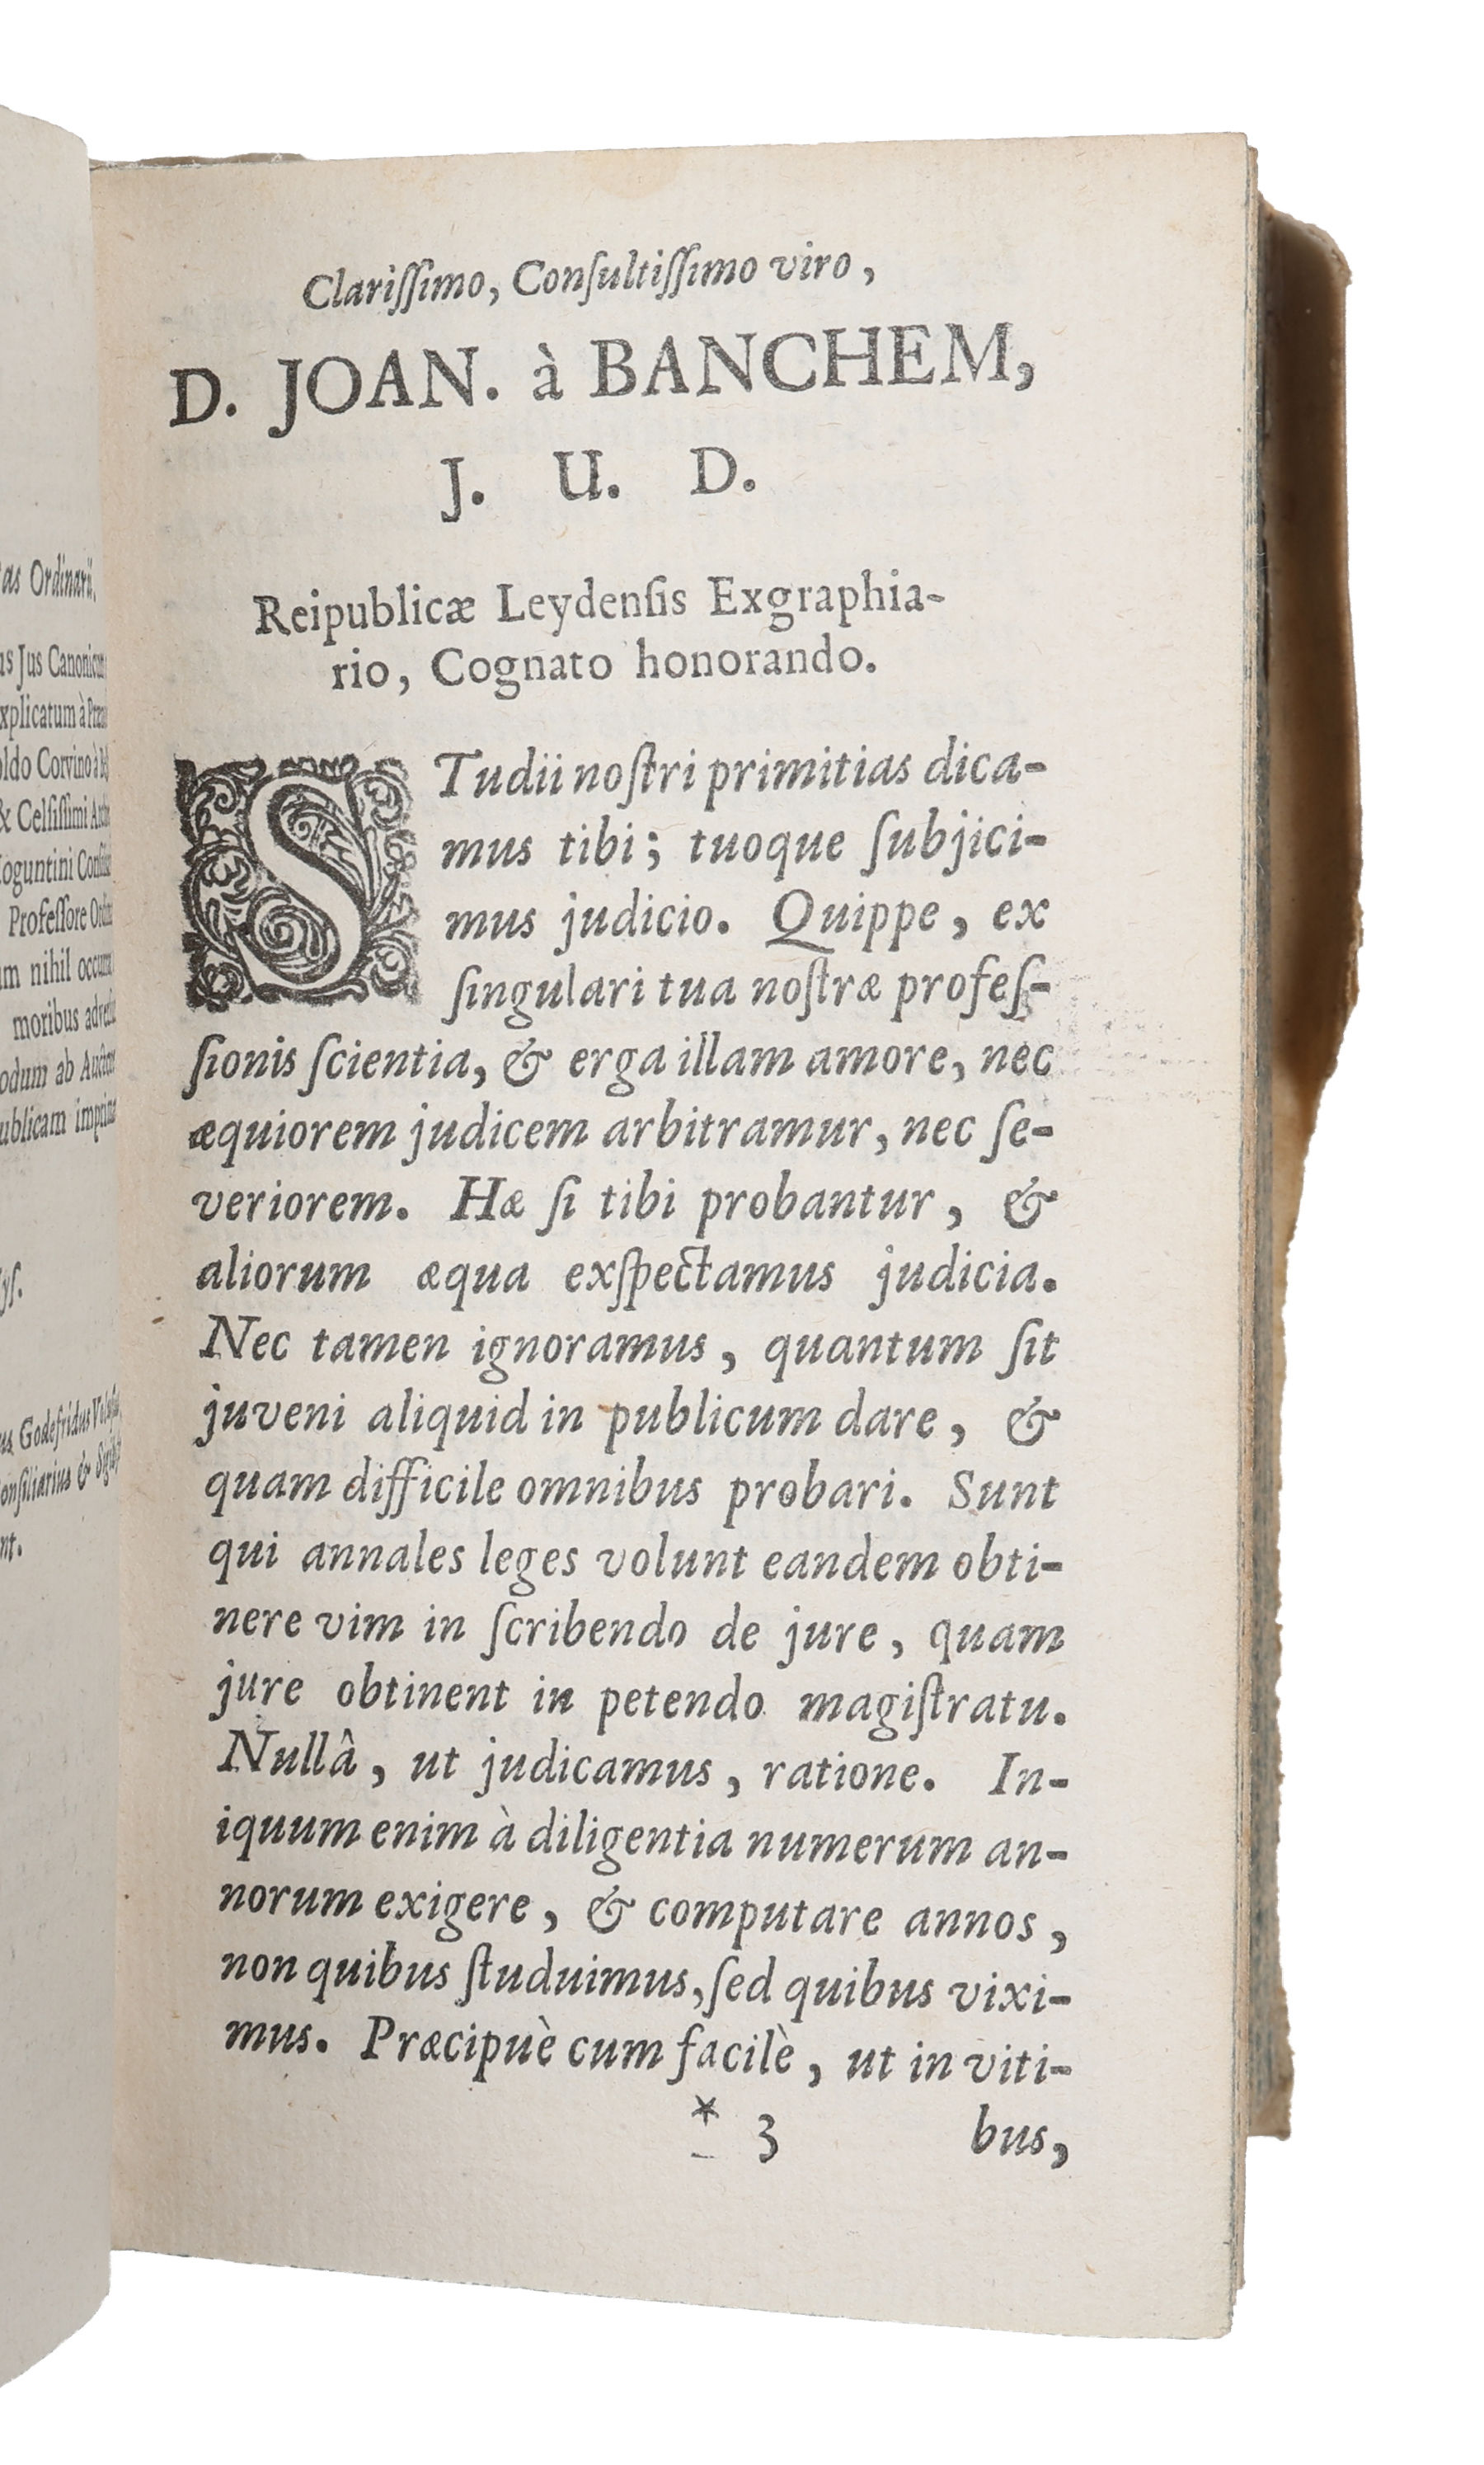 as Ordinarii,
Jus Canonicum
xplicatum à
Corvino à
& Celsissimi
oguntini
Professore
nihil
moribus
ab
ublicam
Godefridus
&
Clariſſimo, Conſultiſſimo viro,
D. JOAN. à BANCHEM,
J. U. D.
Reipublicæ Leydenſis Exgraphia-
rio, Cognato honorando.
STudii noſtri primitias dica-
mus tibi; tuoque ſubjici-
mus judicio. Quippe, ex
ſingulari tua noſtræ profeſ-
ſionis ſcientia, & erga illam amore, nec
æquiorem judicem arbitramur, nec ſe-
veriorem. Hæ ſi tibi probantur, &
aliorum æqua exſpectamus judicia.
Nec tamen ignoramus, quantum ſit
juveni aliquid in publicum dare, &
quam difficile omnibus probari. Sunt
qui annales leges volunt eandem obti-
nere vim in ſcribendo de jure, quam
jure obtinent in petendo magiſtratu.
Nullâ, ut judicamus, ratione. In-
iquum enim à diligentia numerum an-
norum exigere, & computare annos,
non quibus ſtuduimus, ſed quibus vixi-
mus. Præcipuè cum facilè, ut in viti-
* 3 bus,